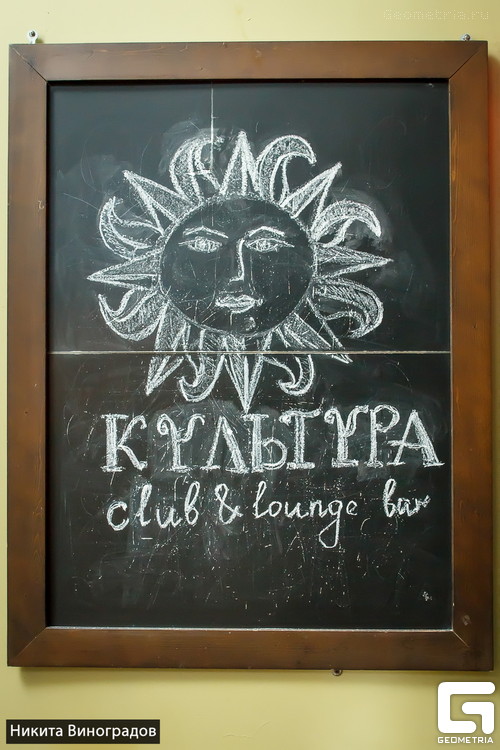 Geometria.ru
КУЛЬТУРА
club & lounge bar
Никита Виноградов
GEOMETRIA